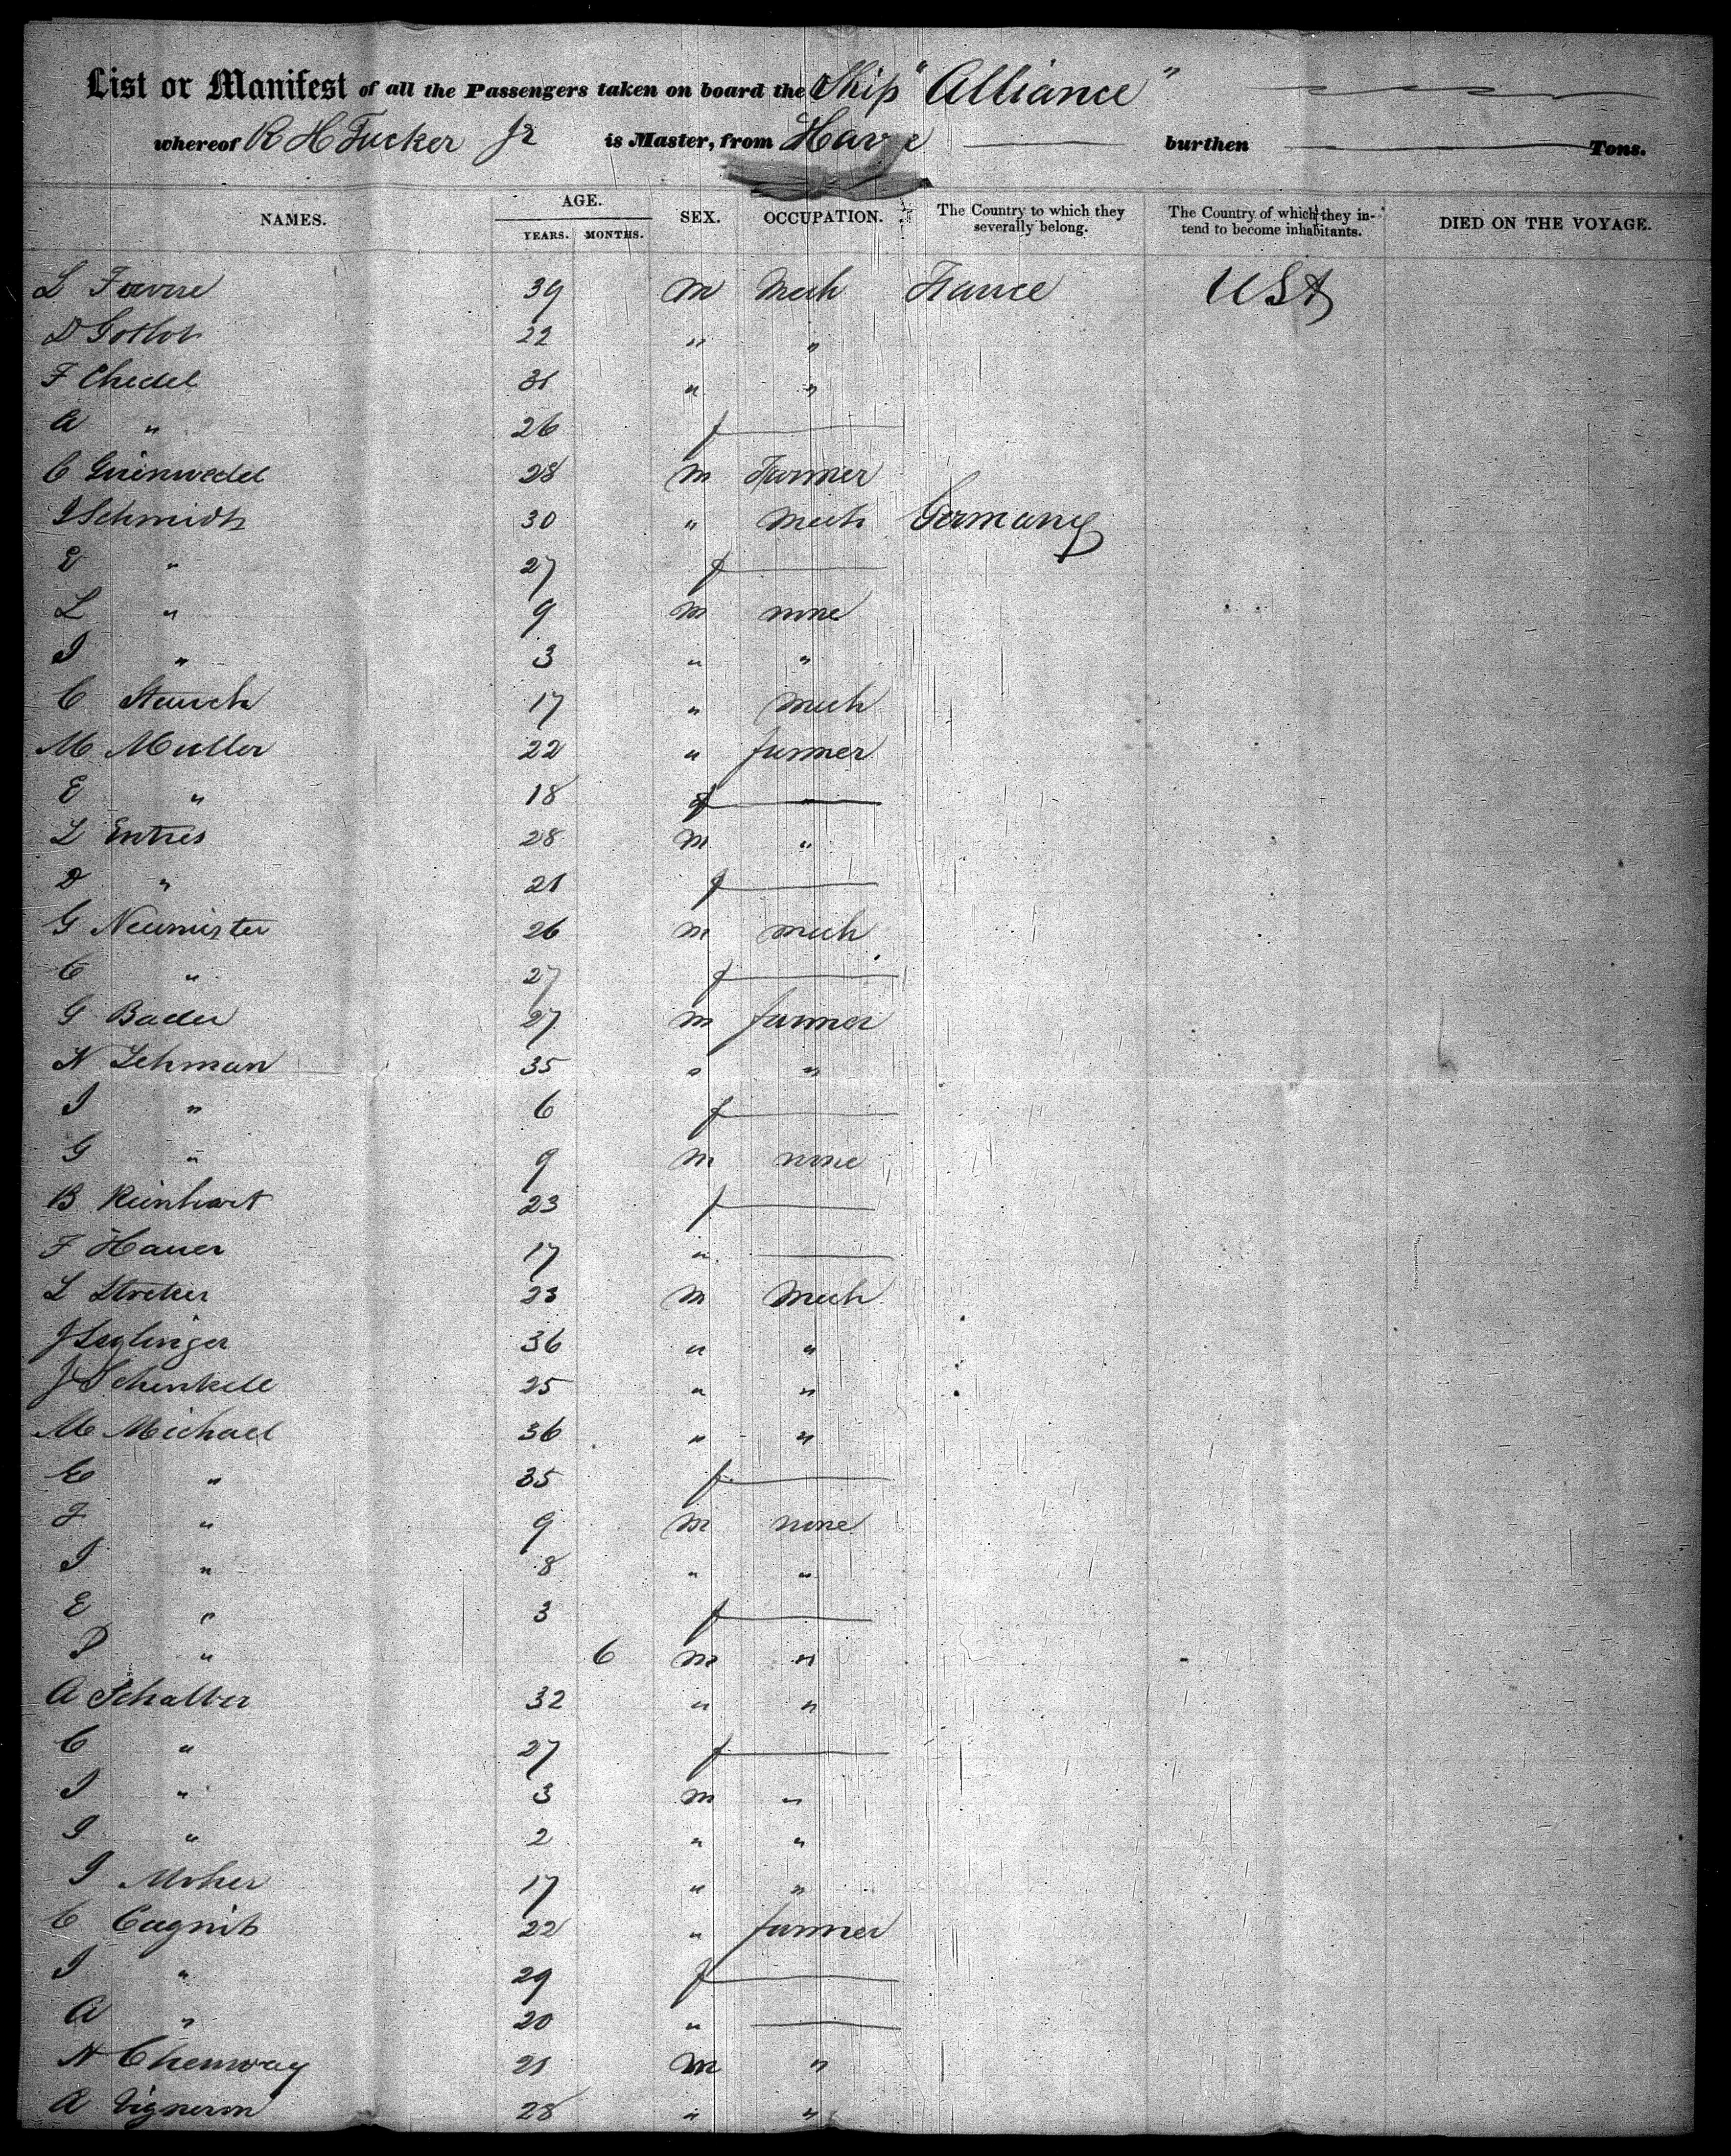 List or Manifest of all the Passengers taken on board the Ship "Alliance"
whereof R H Tucker Jr is Master, from Havre burthen Tons.
NAMES. AGE. YEARS. MONTHS. SEX. OCCUPATION. The Country to which they severally belong. The Country of which they intend to become inhabitants. DIED ON THE VOYAGE.
L Favre 39 m Mech France USA
D 22 " "
F Chedel 31 " "
A " 26 f
C Grinwedel 28 m Farmer
J Schmidt 30 " Mech Germany
E " 27 f
L " 9 m none
J " 3 " "
C Stauch 17 " Mech
M Muller 22 " farmer
E " 18 f "
L Entres 28 m "
D " 21 f
G Neumister 26 m mech
C " 27 f
G Bader 27 m farmer
N Lehman 35 " "
J " 6 f
G " 9 m none
B Reinhart 23 f
F Hauer 17 "
L Streker 23 m Mech
J 36 " "
J Schenkell 25 " "
M Michael 36 " "
E " 35 f
F " 9 m none
J " 8 " "
E " 3 f
P " 6 m "
A Schalber 32 " "
C " 27 f
J " 3 m "
J " 2 " "
J Moher 17 " "
C Cagnib 22 " farmer
J " 29 f
A " 20 "
N Chenway 21 m "
A Vigneron 28 " "